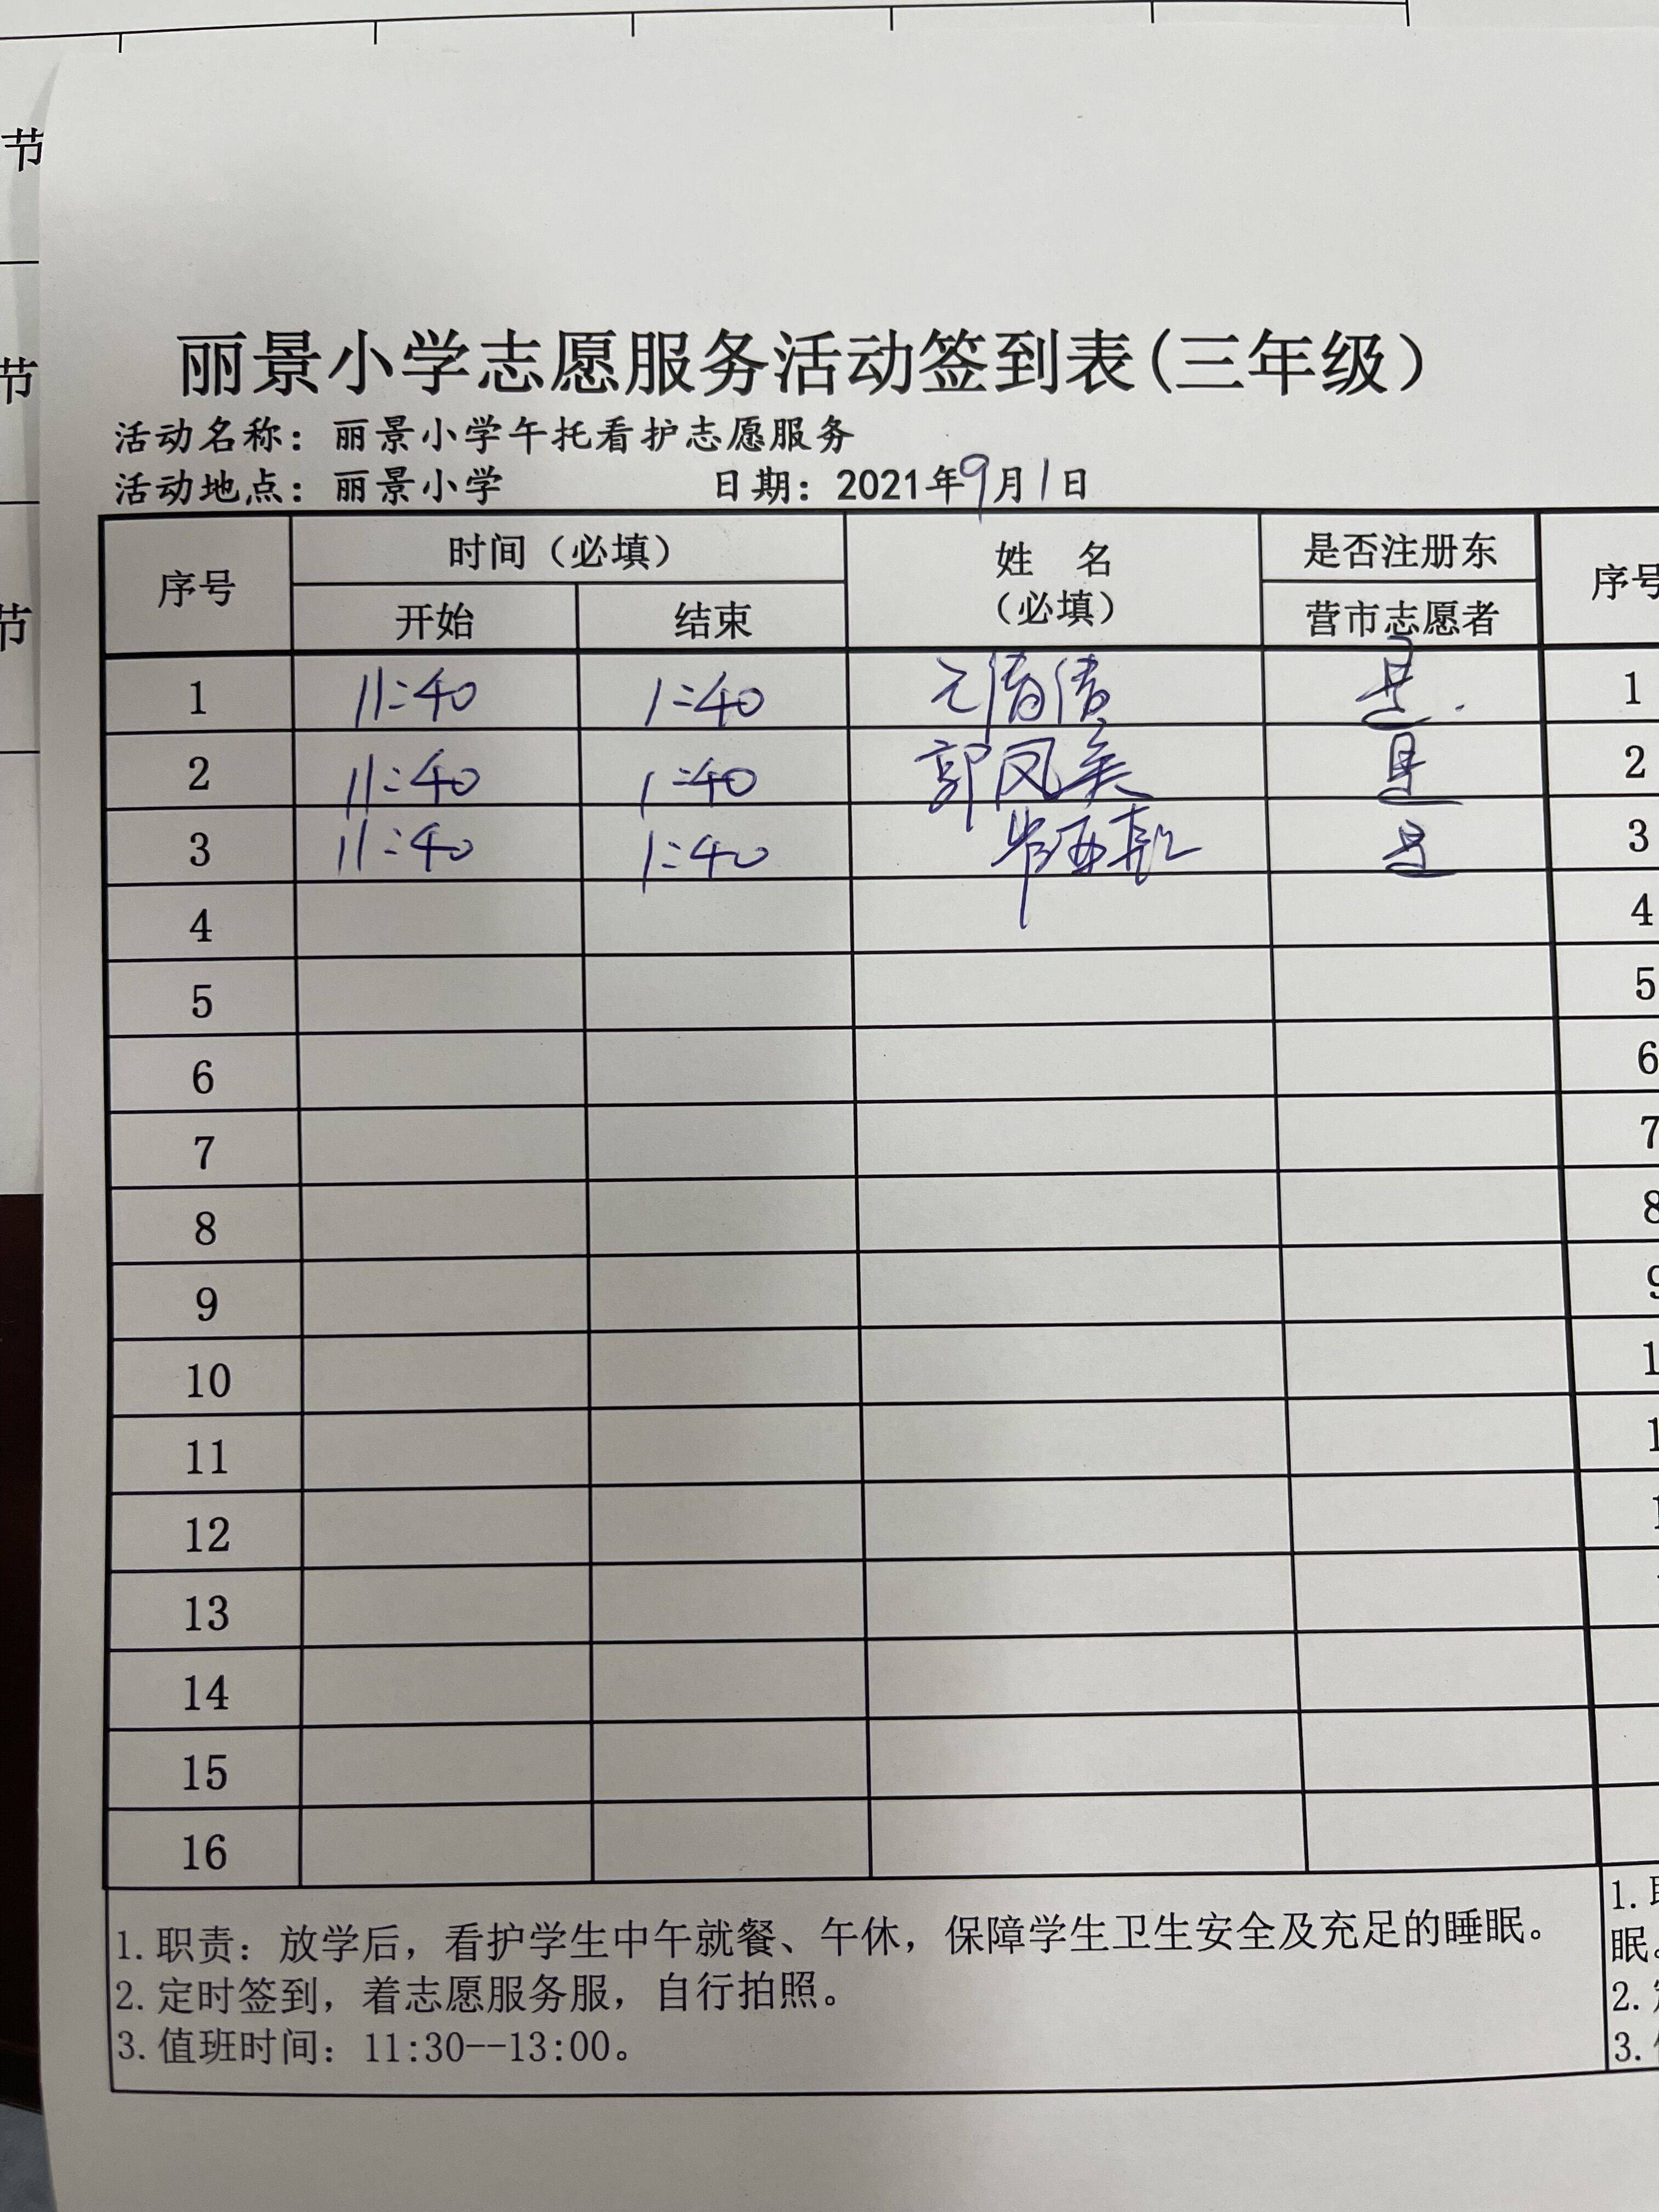 节
节
节
丽景小学志愿服务活动签到表(三年级）
活动名称：丽景小学午托看护志愿服务
活动地点：丽景小学 日期：2021年9月1日
序号 时间（必填） 姓 名 是否注册东 序号
开始 结束 （必填） 营市志愿者
1 11:40 1:40 是. 1
2 11:40 1:40 郭凤美 是 2
3 11:40 1:40 是 3
4 4
5 5
6 6
7 7
8 8
9 9
10 1
11 1
12 1
13
14
15
16
1.职责：放学后，看护学生中午就餐、午休，保障学生卫生安全及充足的睡眠。 1.
眠。
2.定时签到，着志愿服务服，自行拍照。 2.
3.值班时间：11:30--13:00。 3.